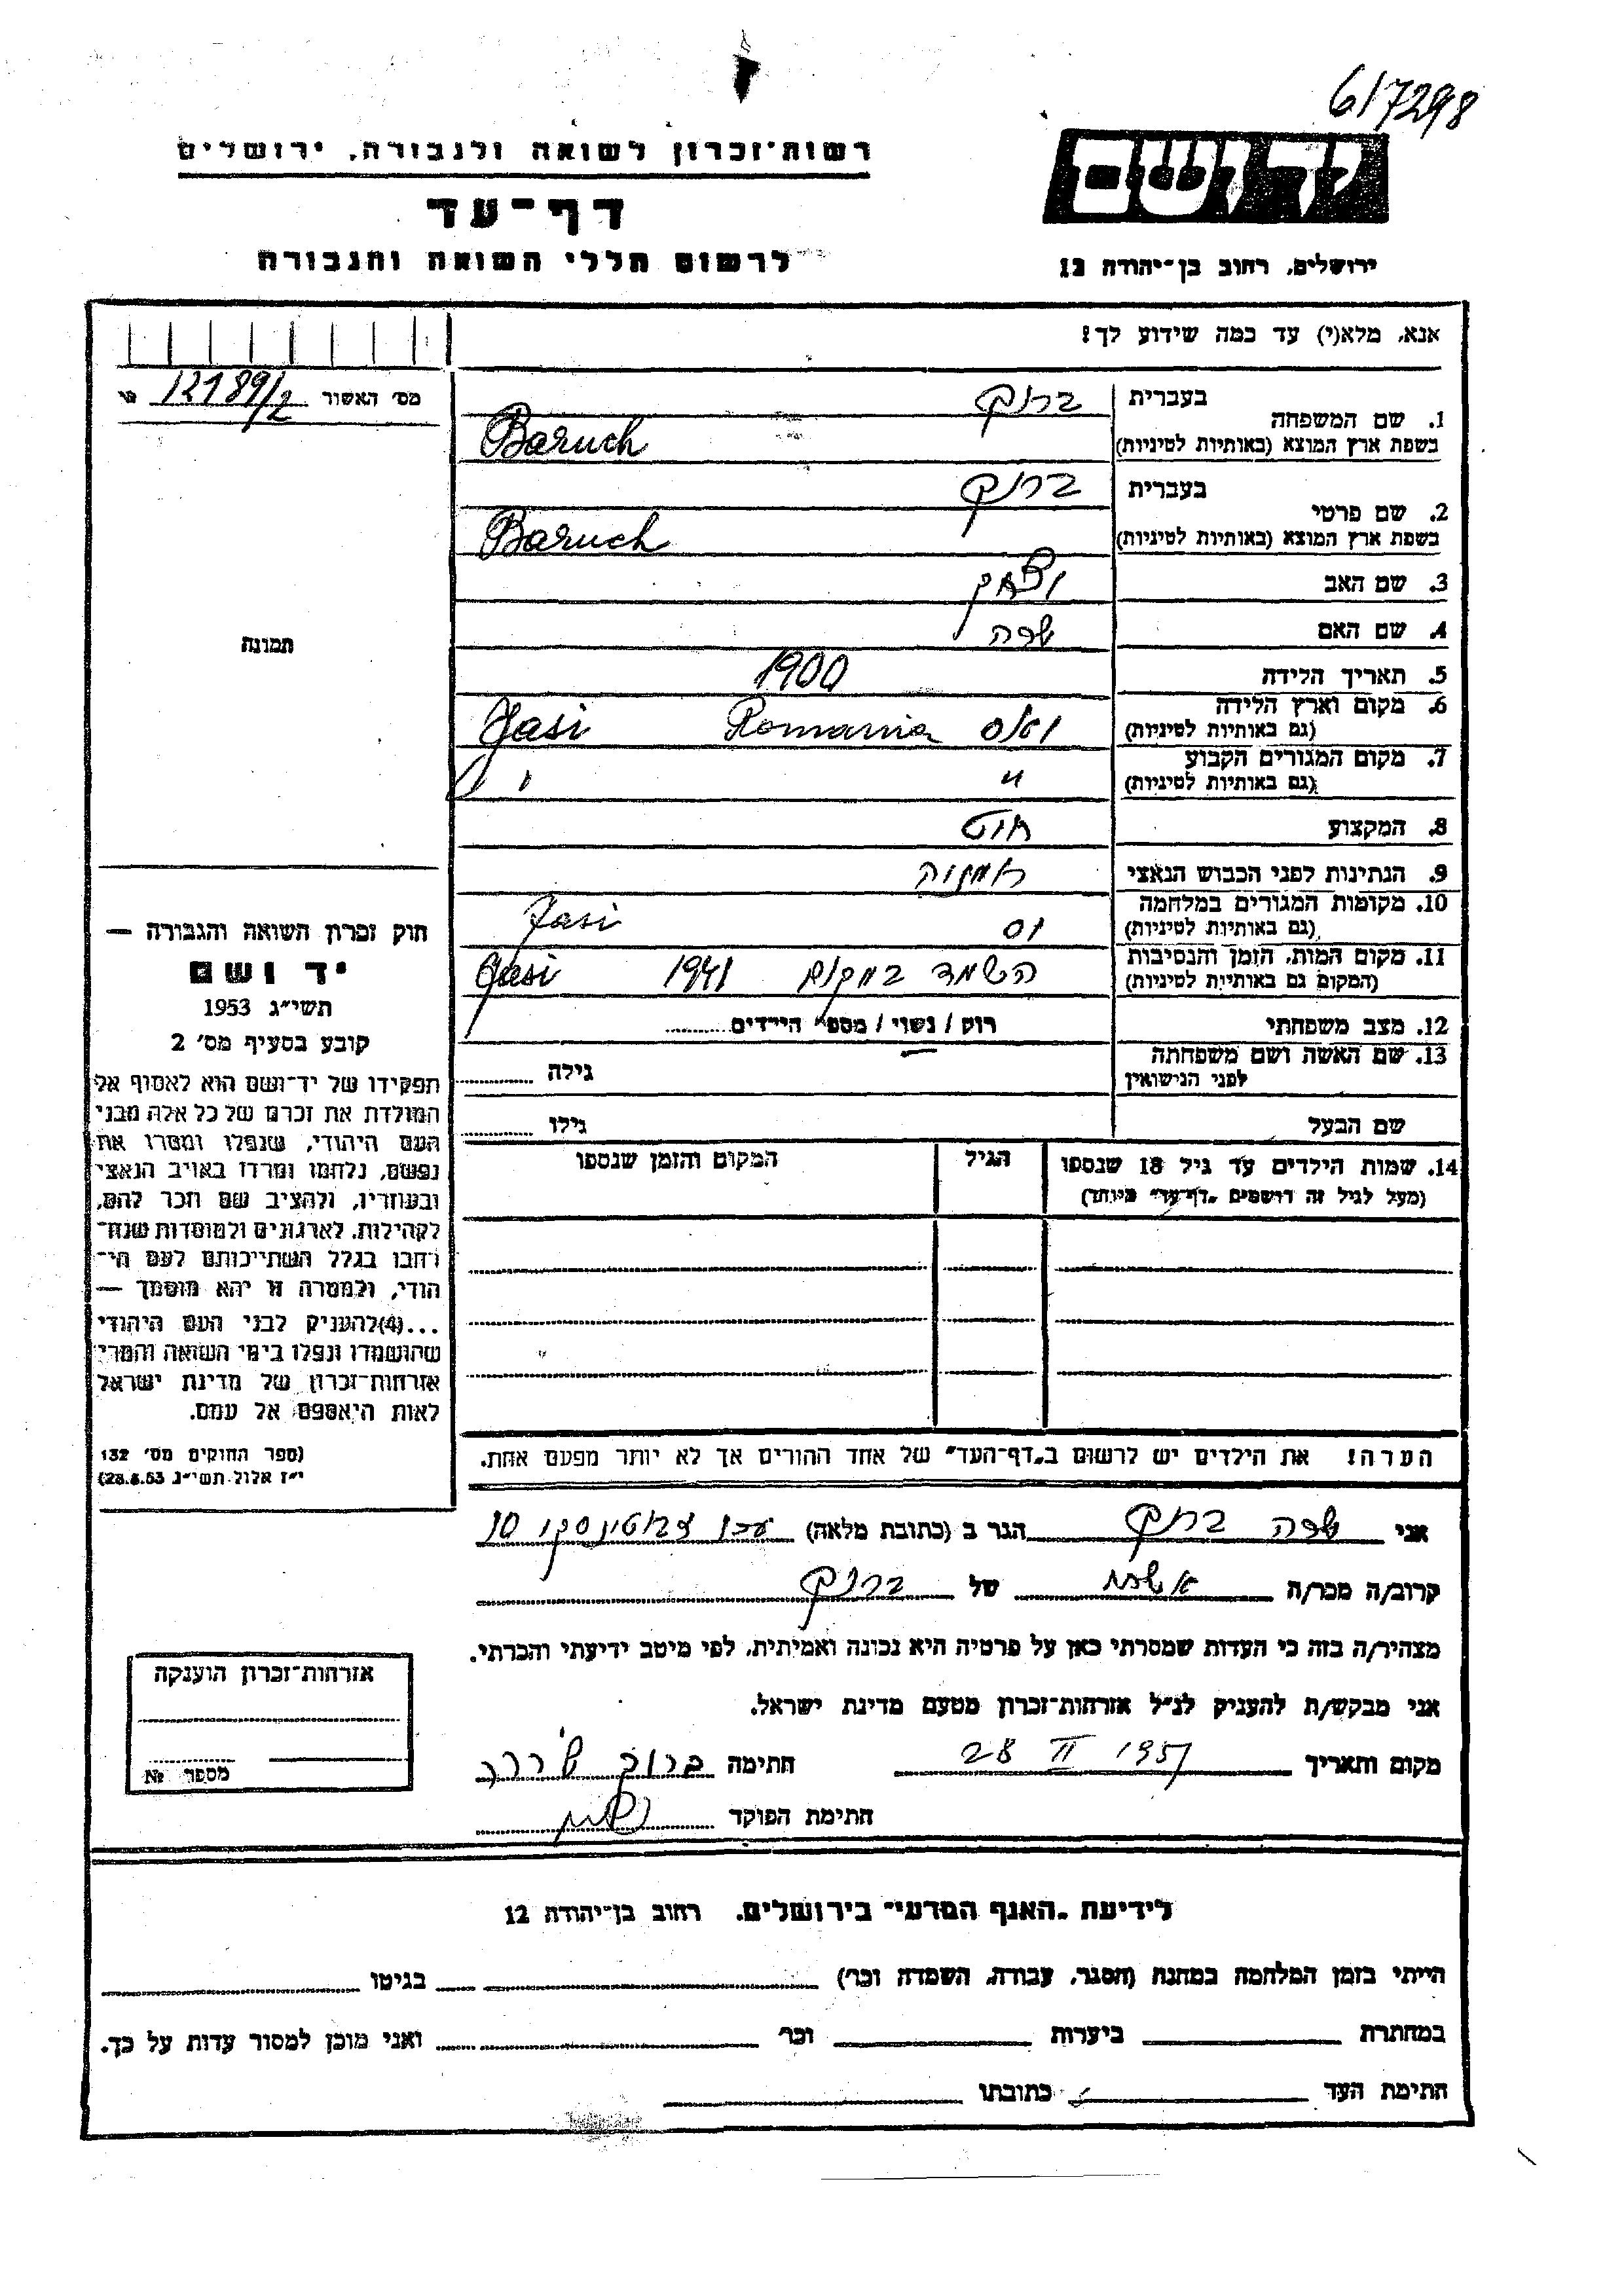 6/7298
רשות־זכרון לשואה ולגבורה, ירושלים
יד ושם
דף־עד
לרשום חללי השואה והגבורה
ירושלים, רחוב בן־יהודה 12
אנא, מלא(י) עד כמה שידוע לך!
מס׳ האשור 12189/2
1. שם המשפחה בעברית ברוך
בשפת ארץ המוצא (באותיות לטיניות) Baruch
2. שם פרטי בעברית ברוך
בשפת ארץ המוצא (באותיות לטיניות) Baruch
3. שם האב יצחק
4. שם האם שרה
5. תאריך הלידה 1900
6. מקום וארץ הלידה
(גם באותיות לטיניות) Romania Jasi
7. מקום המגורים הקבוע
(גם באותיות לטיניות) " "
8. המקצוע חיט
9. הנתינות לפני הכבוש הנאצי רומניה
10. מקומות המגורים במלחמה
(גם באותיות לטיניות) Jasi
11. מקום המות, הזמן והנסיבות
(המקום גם באותיות לטיניות) הושמד במקום 1941 Jasi
12. מצב משפחתי רוק / נשוי / מספר הילדים
13. שם האשה ושם משפחתה
לפני הנישואין גילה
שם הבעל גילו
14. שמות הילדים עד גיל 18 שנספו הגיל המקום והזמן שנספו
(מעל לגיל זה רושמים „דף־עד״ מיוחד)
הערה! את הילדים יש לרשום ב„דף־העד״ של אחד ההורים אך לא יותר מפעם אחת.
תמונה
חוק זכרון השואה והגבורה —
יד ושם
תשי״ג 1953
קובע בסעיף מס׳ 2
תפקידו של יד־ושם הוא לאסוף אל
המולדת את זכרם של כל אלה מבני
העם היהודי, שנפלו ומסרו את
נפשם, נלחמו ומרדו באויב הנאצי
ובעוזריו, ולהציב שם וזכר להם,
לקהילות, לארגונים ולמוסדות שנח־
רבו בגלל השתייכותם לעם הי־
הודי, ולמטרה זו יהא מוסמך —
...(4)להעניק לבני העם היהודי
שהושמדו ונפלו בימי השואה והמרי
אזרחות־זכרון של מדינת ישראל
לאות היאספם אל עמם.
(ספר החוקים מס׳ 132
י״ז אלול תשי״ג 28.8.53)
אני שרה ברוך הגר ב (כתובת מלאה) עכו ז'בוטינסקי 10
קרוב/ה מכר/ה אשתו של ברוך
מצהיר/ה בזה כי העדות שמסרתי כאן על פרטיה היא נכונה ואמיתית, לפי מיטב ידיעתי והכרתי.
אני מבקש/ת להעניק לנ״ל אזרחות־זכרון מטעם מדינת ישראל.
מקום ותאריך 28 II 1957 חתימה
חתימת הפוקד
אזרחות־זכרון הוענקה
מספר №
לידיעת „האגף המדעי״ בירושלים, רחוב בן־יהודה 12
הייתי בזמן המלחמה במחנה (הסגר, עבודה, השמדה וכו׳) בגיטו
במחתרת ביערות וכו׳ ואני מוכן למסור עדות על כך.
חתימת העד כתובתו